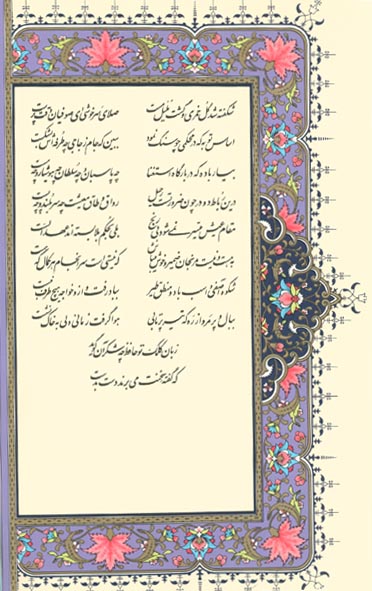 شکفته شد گل حمری و گشت بلبل مست صلای سرخوشی ای صوفیان باده پرست
اساس توبه که در محکمی چو سنگ نمود ببین که جام زجاجی چه طرفه‌اش بشکست
بیار باده که در بارگاه استغنا چه پاسبان و چه سلطان چه هوشیار و چه مست
درین رباط دو در چون ضرورتست رحیل رواق و طاق معیشت چه سربلند و چه پست
مقام عیش میسر نمی‌شود بی‌رنج بلی بحکم بلا بسته‌اند عهد الست
به هست و نیست مرنجان ضمیر و خوش میباش که نیستی است سرانجام هر کمال که هست
شکوه آصفی و اسب باد و منطق طیر بباد رفت و ازو خواجه هیچ طرف نبست
ببال و پر مرو از ره که تیر پرتابی هوا گرفت زمانی ولی به خاک نشست
زبان کلک تو حافظ چه شکر آن گوید
که گفته سخنت می‌برند دست بدست